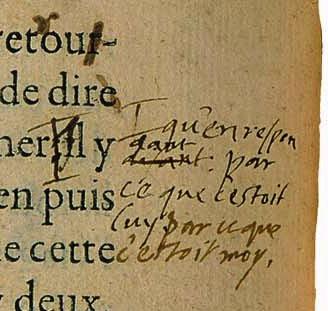 retour-
de dire
ner. Il y
en puis
e cette
y deux
qu'en respon
dant
dant: par
ce que c'estoit
luy par ce que
c'estoit moy.